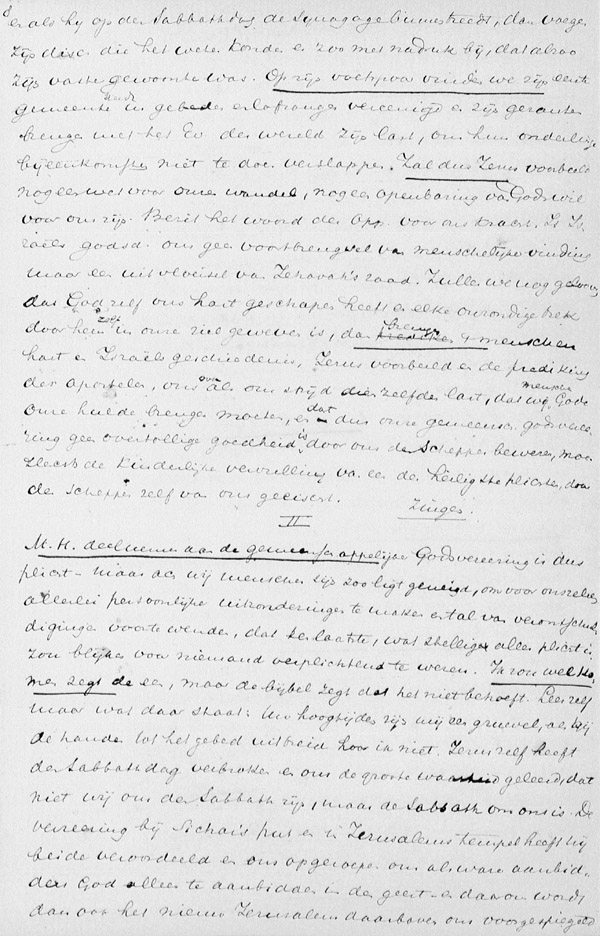 en als hij op den Sabbathdag de Synagoge binnentreedt, dan voegen
zij dezen die het weten konden er zoo met nadruk bij, dat alzoo
zijn vaste gewoonte was. Op zijn voetspoor vinden we zijn eerste
gemeente steeds in gebeden en lofzangen vereenigd en zijn gezanten
brengen met het Ev. der wereld zijn last, om hun onderlinge
bijeenkomsten niet te doen verslappen. Zal dus Jezus voorbeeld
nog een wet voor onze wandel, nog een openbaring van Gods wil
voor ons zijn. Bezit het woord der App. voor ons kracht, Is Is-
raëls godsd. ons geen voortbrengsel van menschelijke vinding
maar een uitvloeisel van Jehovah's raad. Zullen we nog gelooven
dat God zelf ons hart geschapen heeft en elke onzondige trek
door hem zelf in onze ziel geweven is, dan brengen menschen
hart en Israëls geschiedenis, Jezus voorbeeld en de prediking
der Apostelen, ons allen om strijd den zelfden last, dat wij menschen Gode
onze hulde brengen moeten, en dat dus onze gemeensch. godsveree-
ring geen overtollige goedheid is door ons den Schepper bewezen, maar
slechts de kinderlijke vervulling van een der heiligste plichten, door
den Schepper zelf van ons geëischt.
Zingen.
II
M. H. deelnemen aan de gemeenschappelijke Godsvereering is dus
plicht - maar ach wij menschen zijn zoo ligt geneigd, om voor onszelven
allerlei persoonlijke uitzonderingen te maken en tal van verontschul-
digingen voorte wenden, dat ten laatste, wat stelligen aller plicht is
zou blijken voor niemand verplichtend te wezen. Ik zou wel ko-
men zegt de een, maar de bijbel zegt dat het niet behoeft. Lees zelf
maar wat daar staat: Uw hoogtijden zijn mij een gruwel, als gij
de handen tot het gebed uitbreidt hoor ik niet. Jezus zelf heeft
den Sabbathdag verbroken en ons de groote waarheid geleerd, dat
niet wij om den Sabbath zijn, maar de Sabbath om ons is. De
vereering bij Sichars put en in Jeruzalems tempel heeft hij
beide veroordeeld en ons opgeroepen om als ware aanbid-
ders God alleen te aanbidden in den geest - en daarom wordt
dan ook het nieuw Jeruzalem daarboven ons voorgespiegeld